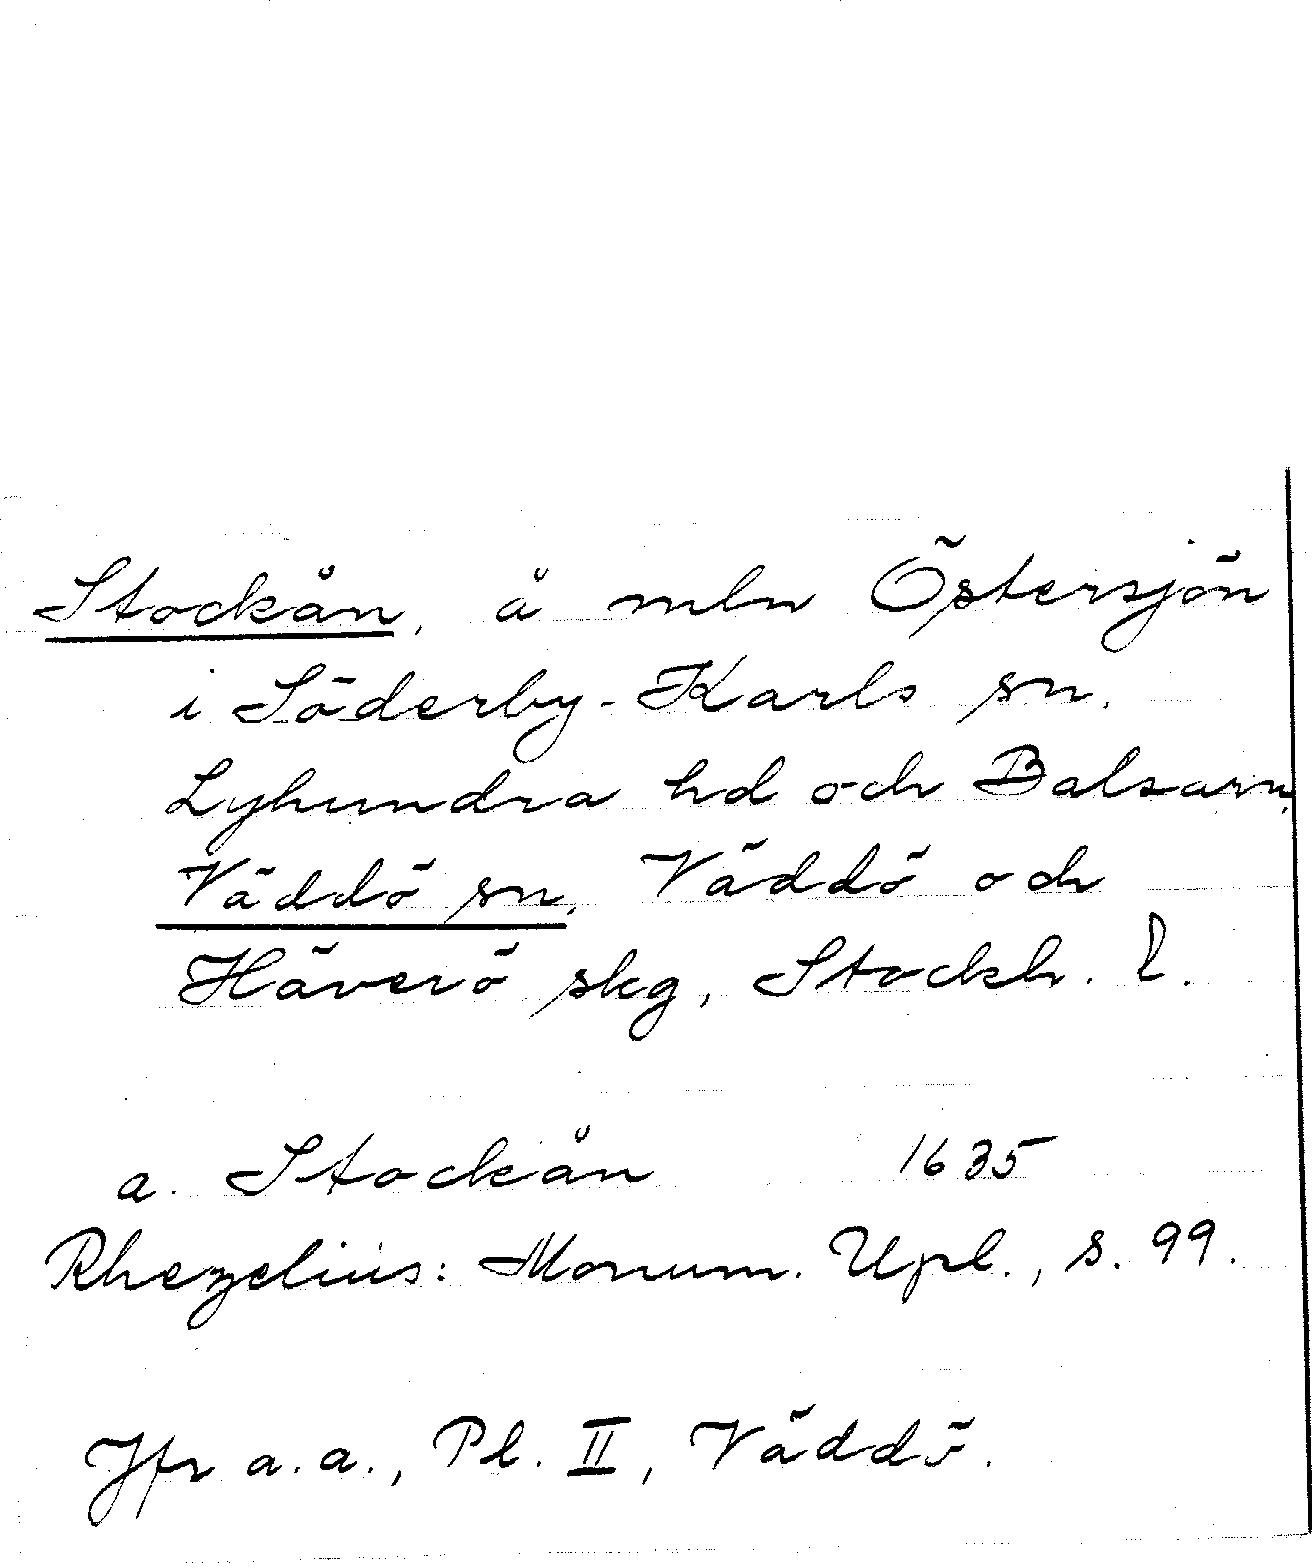 Stockån, å mln Östersjön
i Söderby-Karls sn.
Lyhundra hd och Balsarn,
Väddö sn, Väddö och
Häverö skg, Stockh. l.
a. Stockån 1635
Rhezelius: Monum. Upl., s. 99.
Jfr a.a., Pl. II, Väddö.